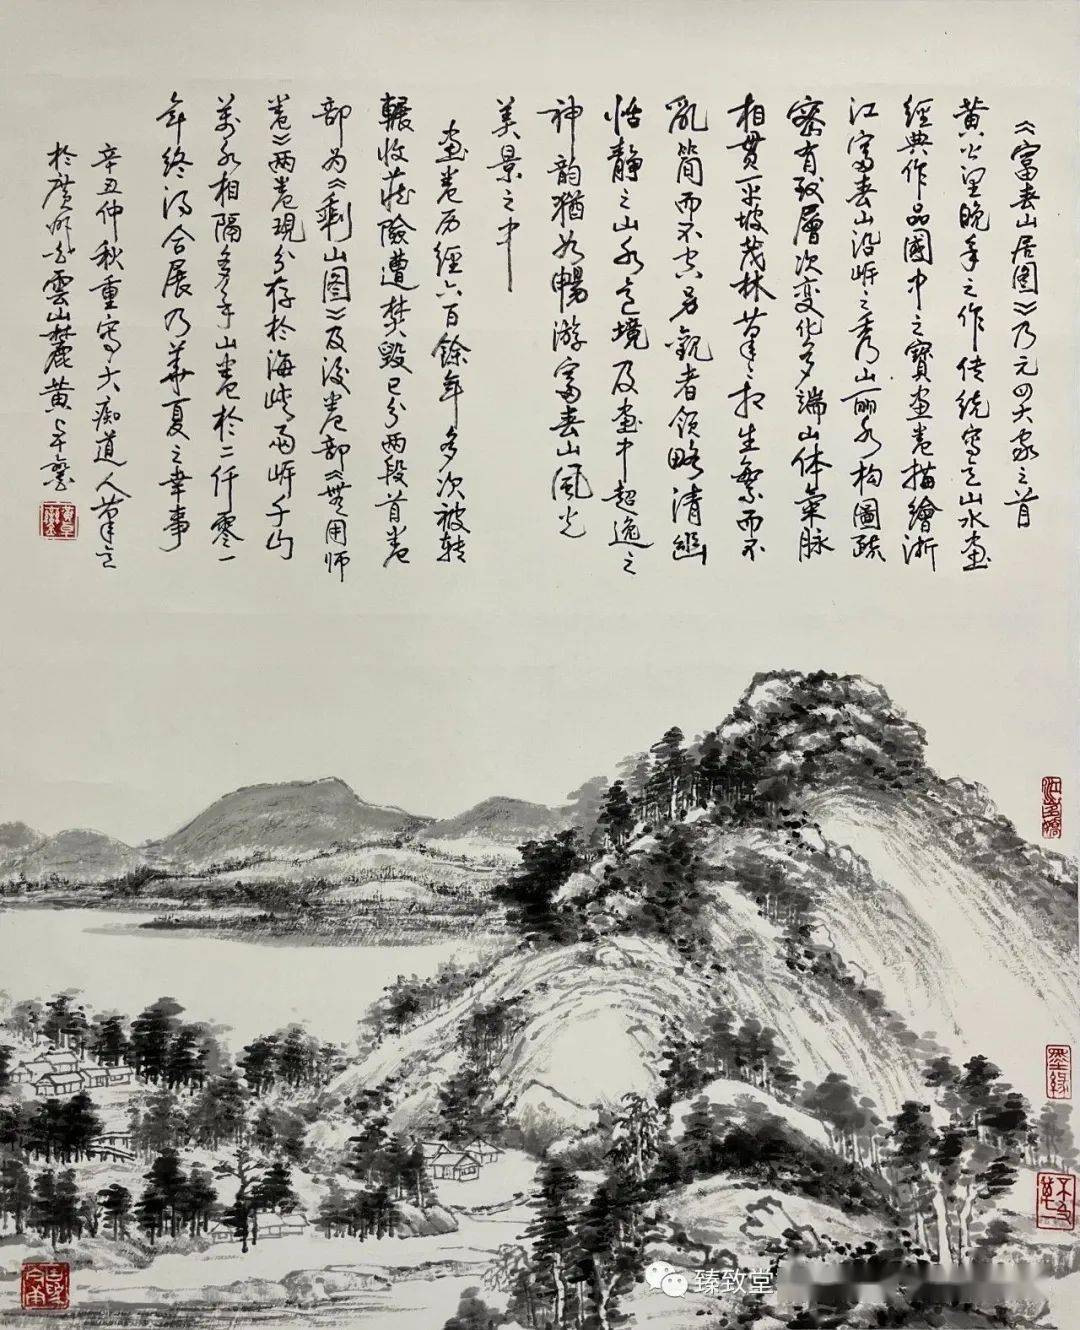 《富春山居图》乃元四大家之首
黄公望晚年之作传统写意山水画
經典作品國中之寶畫卷描繪浙
江富春山沿岍之秀山丽水构圖疏
密有致層次变化多端山体氣脉
相貫平坡茂林笔笔相生繁而不
亂简而不空另觀者领略清幽
恬静之山水意境及畫中超逸之
神韵猶如暢游富春山風光
美景之中
畫卷历經六百餘年多次被转
輾收藏險遭焚毁已分两段首卷
部为《剩山图》及後卷部《無用师
卷》两卷現分存於海峡两岍千山
萬水相隔多年山卷於二仟零一
年终得合展乃華夏之幸事
辛丑仲秋重写大痴道人筆意
於廣州白雲山麓黄
無缘
臻致堂